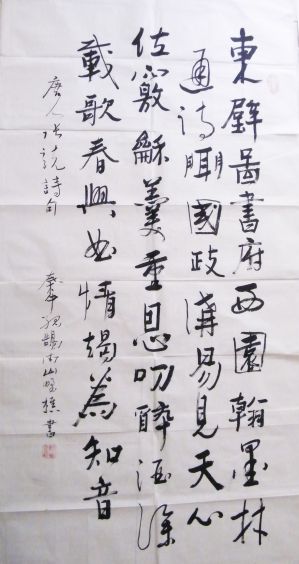 東壁啚書府西園翰墨林
通詩聞國政講易見天心
位竊龢羹重恩叨醉酒深
載歌春興曲情竭為知音
唐人張說詩句
山野樵書